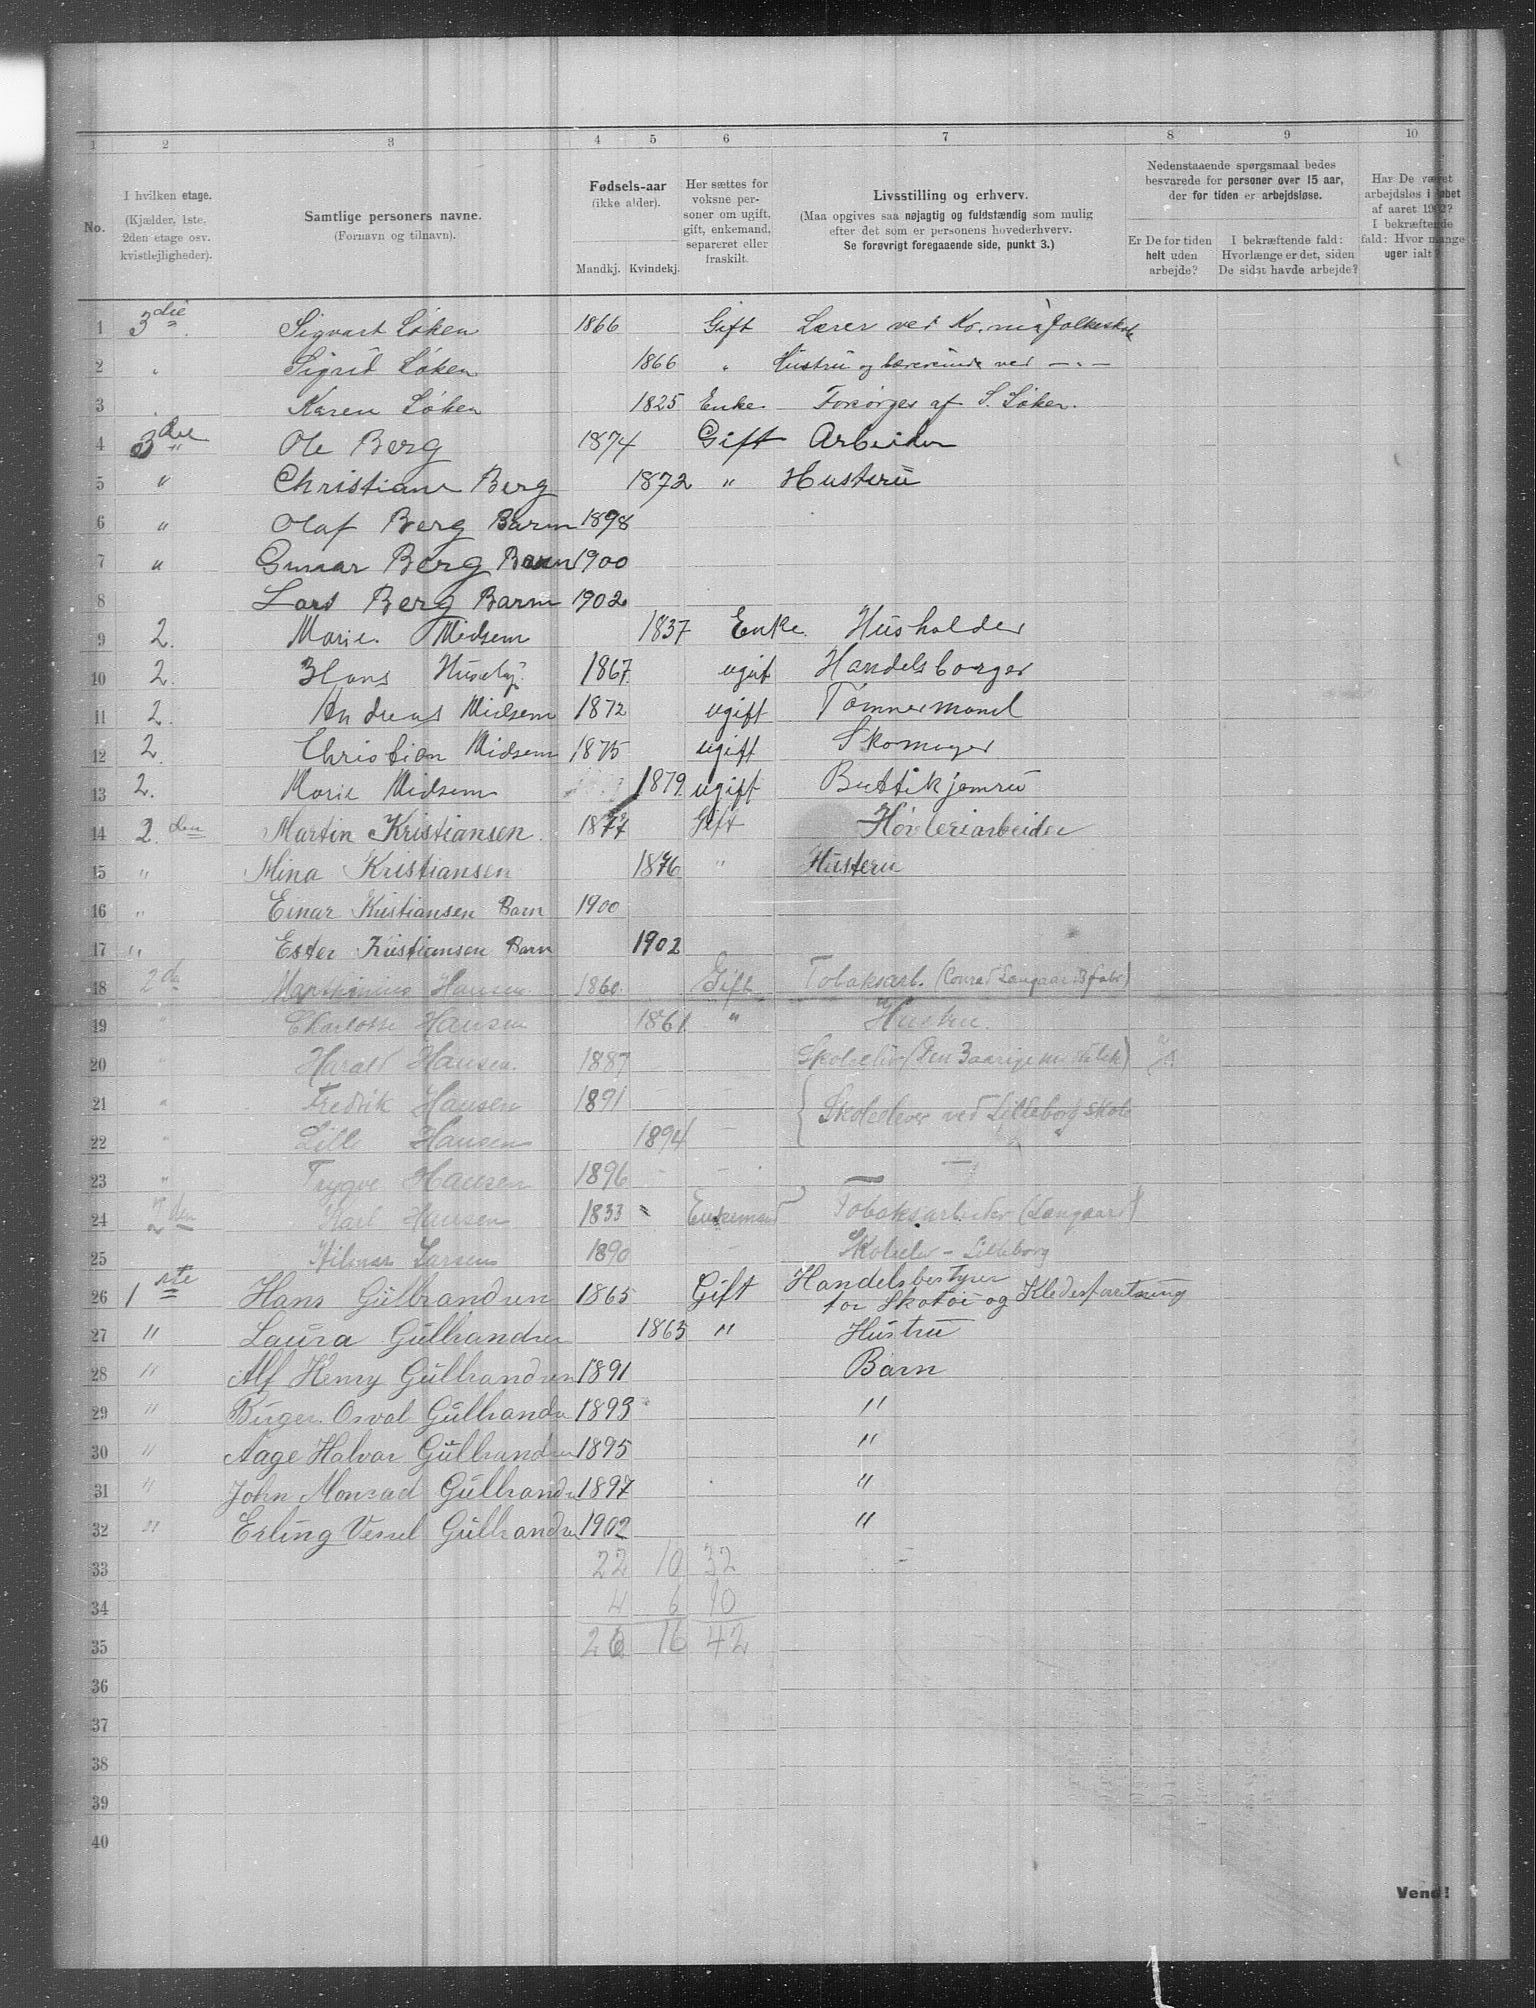 1 2 3 4 5 6 7 8 9 10
No.
I hvilken etage.
(Kjælder, 1ste,
2den etage osv.
kvistlejligheder).
Samtlige personers navne.
(Fornavn og tilnavn).
Fødsels-aar
(ikke alder).
Mandkj. Kvindekj.
Her sættes for
voksne per-
soner om ugift,
gift, enkemand,
separeret eller
fraskilt.
Livsstilling og erhverv.
(Maa opgives saa nøjagtig og fuldstændig som mulig
efter det som er personens hovederhverv.
Se forøvrigt foregaaende side, punkt 3.)
Nedenstaaende spørgsmaal bedes
besvarede for personer over 15 aar,
der for tiden er arbejdsløse.
Er De for tiden
helt uden
arbejde?
I bekræftende fald:
Hvorlænge er det, siden
De sidst havde arbejde?
Har De været
arbejdsløs i løbet
af aaret 1902?
I bekræftende
fald: Hvor mange
uger ialt?
1 3die Sigvart Løken 1866 Gift Lærer ved Kr.nia Folkeskole
2 " Sigrid Løken 1866 " Hustru og Lærerinde ved — " —
3 " Karen Løken 1825 Enke Forsørges af S. Løken.
4 3die Ole Berg 1874 Gift Arbeider
5 " Christiane Berg 1872 " Husteru
6 " Olaf Berg Barn 1898
7 " Gunar Berg Barn 1900
8 Lars Berg Barn 1902
9 2. Marie Midsem 1837 Enke Husholder
10 2. Hans Huseby 1867 ugift Handelsborger
11 2. Andreas Midsem 1872 ugift Tømmermand
12 2. Christian Midsem 1875 ugift Skomager
13 2. Marie Midsem 1879 ugift Buttikjomru
14 2.den Martin Kristiansen. 1877 Gift Høvleriarbeider
15 " Mina Kristiansen 1876 " Husteru
16 " Einar Kristiansen Barn 1900
17 " Ester Kristiansen Barn 1902
18 2d Marthinius Hansen 1860. Gift Tobaksarb. (Conrad Langaards fabr)
19 " Charlotte Hansen 1861 " Hustru
20 " Harald Hansen. 1887
21 " Fredrik Hansen 1891 Skoleelever ved Lilleborg skole
22 " Lilli Hansen 1894
23 " Trygve Hansen 1896 —
24 2den Karl Hansen 1833 Enkemand Tobaksarbeider (Langaard)
25 Hilmar Larsen 1890 Skoleelev - Lilleborg
26 1ste Hans Gulbrandsen 1865 Gift Handelsbestyrer
for Skotøi og Klædesforretning
27 " Laura Gulbrandsen 1865 " Hustru
28 " Alf Henry Gulbrandsen 1891 Barn
29 " Birger Osval Gulbrandsen 1893 "
30 " Aage Halvar Gulbrandsen 1895 "
31 " John Monrad Gulbrandsen 1897 "
32 " Erling Vessel Gulbrandsen 1902 "
33 22 10 32
34 4 6 10
35 26 16 42
36
37
38
39
40
Vend!